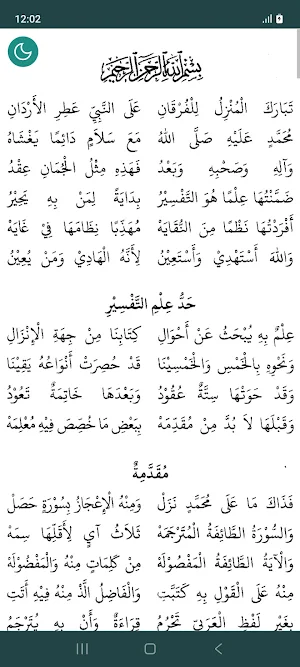 12:02
بِسْمِ اللَّهِ الرَّحْمَنِ الرَّحِيمِ
تَبَارَكَ الْمُنْزِلُ لِلْفُرْقَانِ عَلَى النَّبِيِّ عَطِرِ الْأَرْدَانِ
مُحَمَّدٍ عَلَيْهِ صَلَّى اللهُ مَعَ سَلَامٍ دَائِمًا يَغْشَاهُ
وَآلِهِ وَصَحْبِهِ وَبَعْدُ فَهَذِهِ مِثْلُ الْجُمَانِ عِقْدُ
ضَمَّنْتُهَا عِلْمًا هُوَ التَّفْسِيْرُ بِدَايَةً لِمَنْ بِهِ يَحِيْرُ
أَفْرَدْتُهَا نَظْمًا مِنَ النُّقَايَهْ مُهَذِّبًا نِظَامَهَا فِيْ غَايَهْ
وَاللهَ أَسْتَهْدِيْ وَأَسْتَعِيْنُ لِأَنَّهُ الْهَادِيْ وَمَنْ يُعِيْنُ
حَدُّ عِلْمِ التَّفْسِيْرِ
عِلْمٌ بِهِ يُبْحَثُ عَنْ أَحْوَالِ كِتَابِنَا مِنْ جِهَةِ الْإِنْزَالِ
وَنَحْوِهِ بِالْخَمْسِ وَالْخَمْسِيْنَا قَدْ حُصِرَتْ أَنْوَاعُهُ يَقِيْنَا
وَقَدْ حَوَتْهَا سِتَّةٌ عُقُوْدُ وَبَعْدَهَا خَاتِمَةٌ تَعُوْدُ
وَقَبْلَهَا لَا بُدَّ مِنْ مُقَدِّمَهْ بِبَعْضِ مَا خُصِّصَ فِيْهِ مُعْلِمَهْ
مُقَدَّمِةٌ
فَذَاكَ مَا عَلَى مُحَمَّدٍ نَزَلْ وَمِنْهُ الْإِعْجَازُ بِسُوْرَةٍ حَصَلْ
وَالسُّوْرَةُ الطَّائِفَةُ الْمُتَرْجَمَهْ ثَلَاثُ آيٍ لِأَقَلِّهَا سِمَهْ
وَالْآيَةُ الطَّائِفَةُ الْمَفْصُوْلَهْ مِنْ كَلِمَاتٍ مِنْهُ وَالْمَفْضُوْلَهْ
مِنْهُ عَلَى الْقَوْلِ بِهِ كَتَبَّتِ وَالْفَاضِلُ الَّذْ مِنْهُ فِيْهِ أَتَتِ
بِغَيْرِ لَفْظِ الْعَرَبِيِّ تَحْرُمُ قِرَاءَةٌ وَأَنْ بِهِ يُتَرْجَمُ